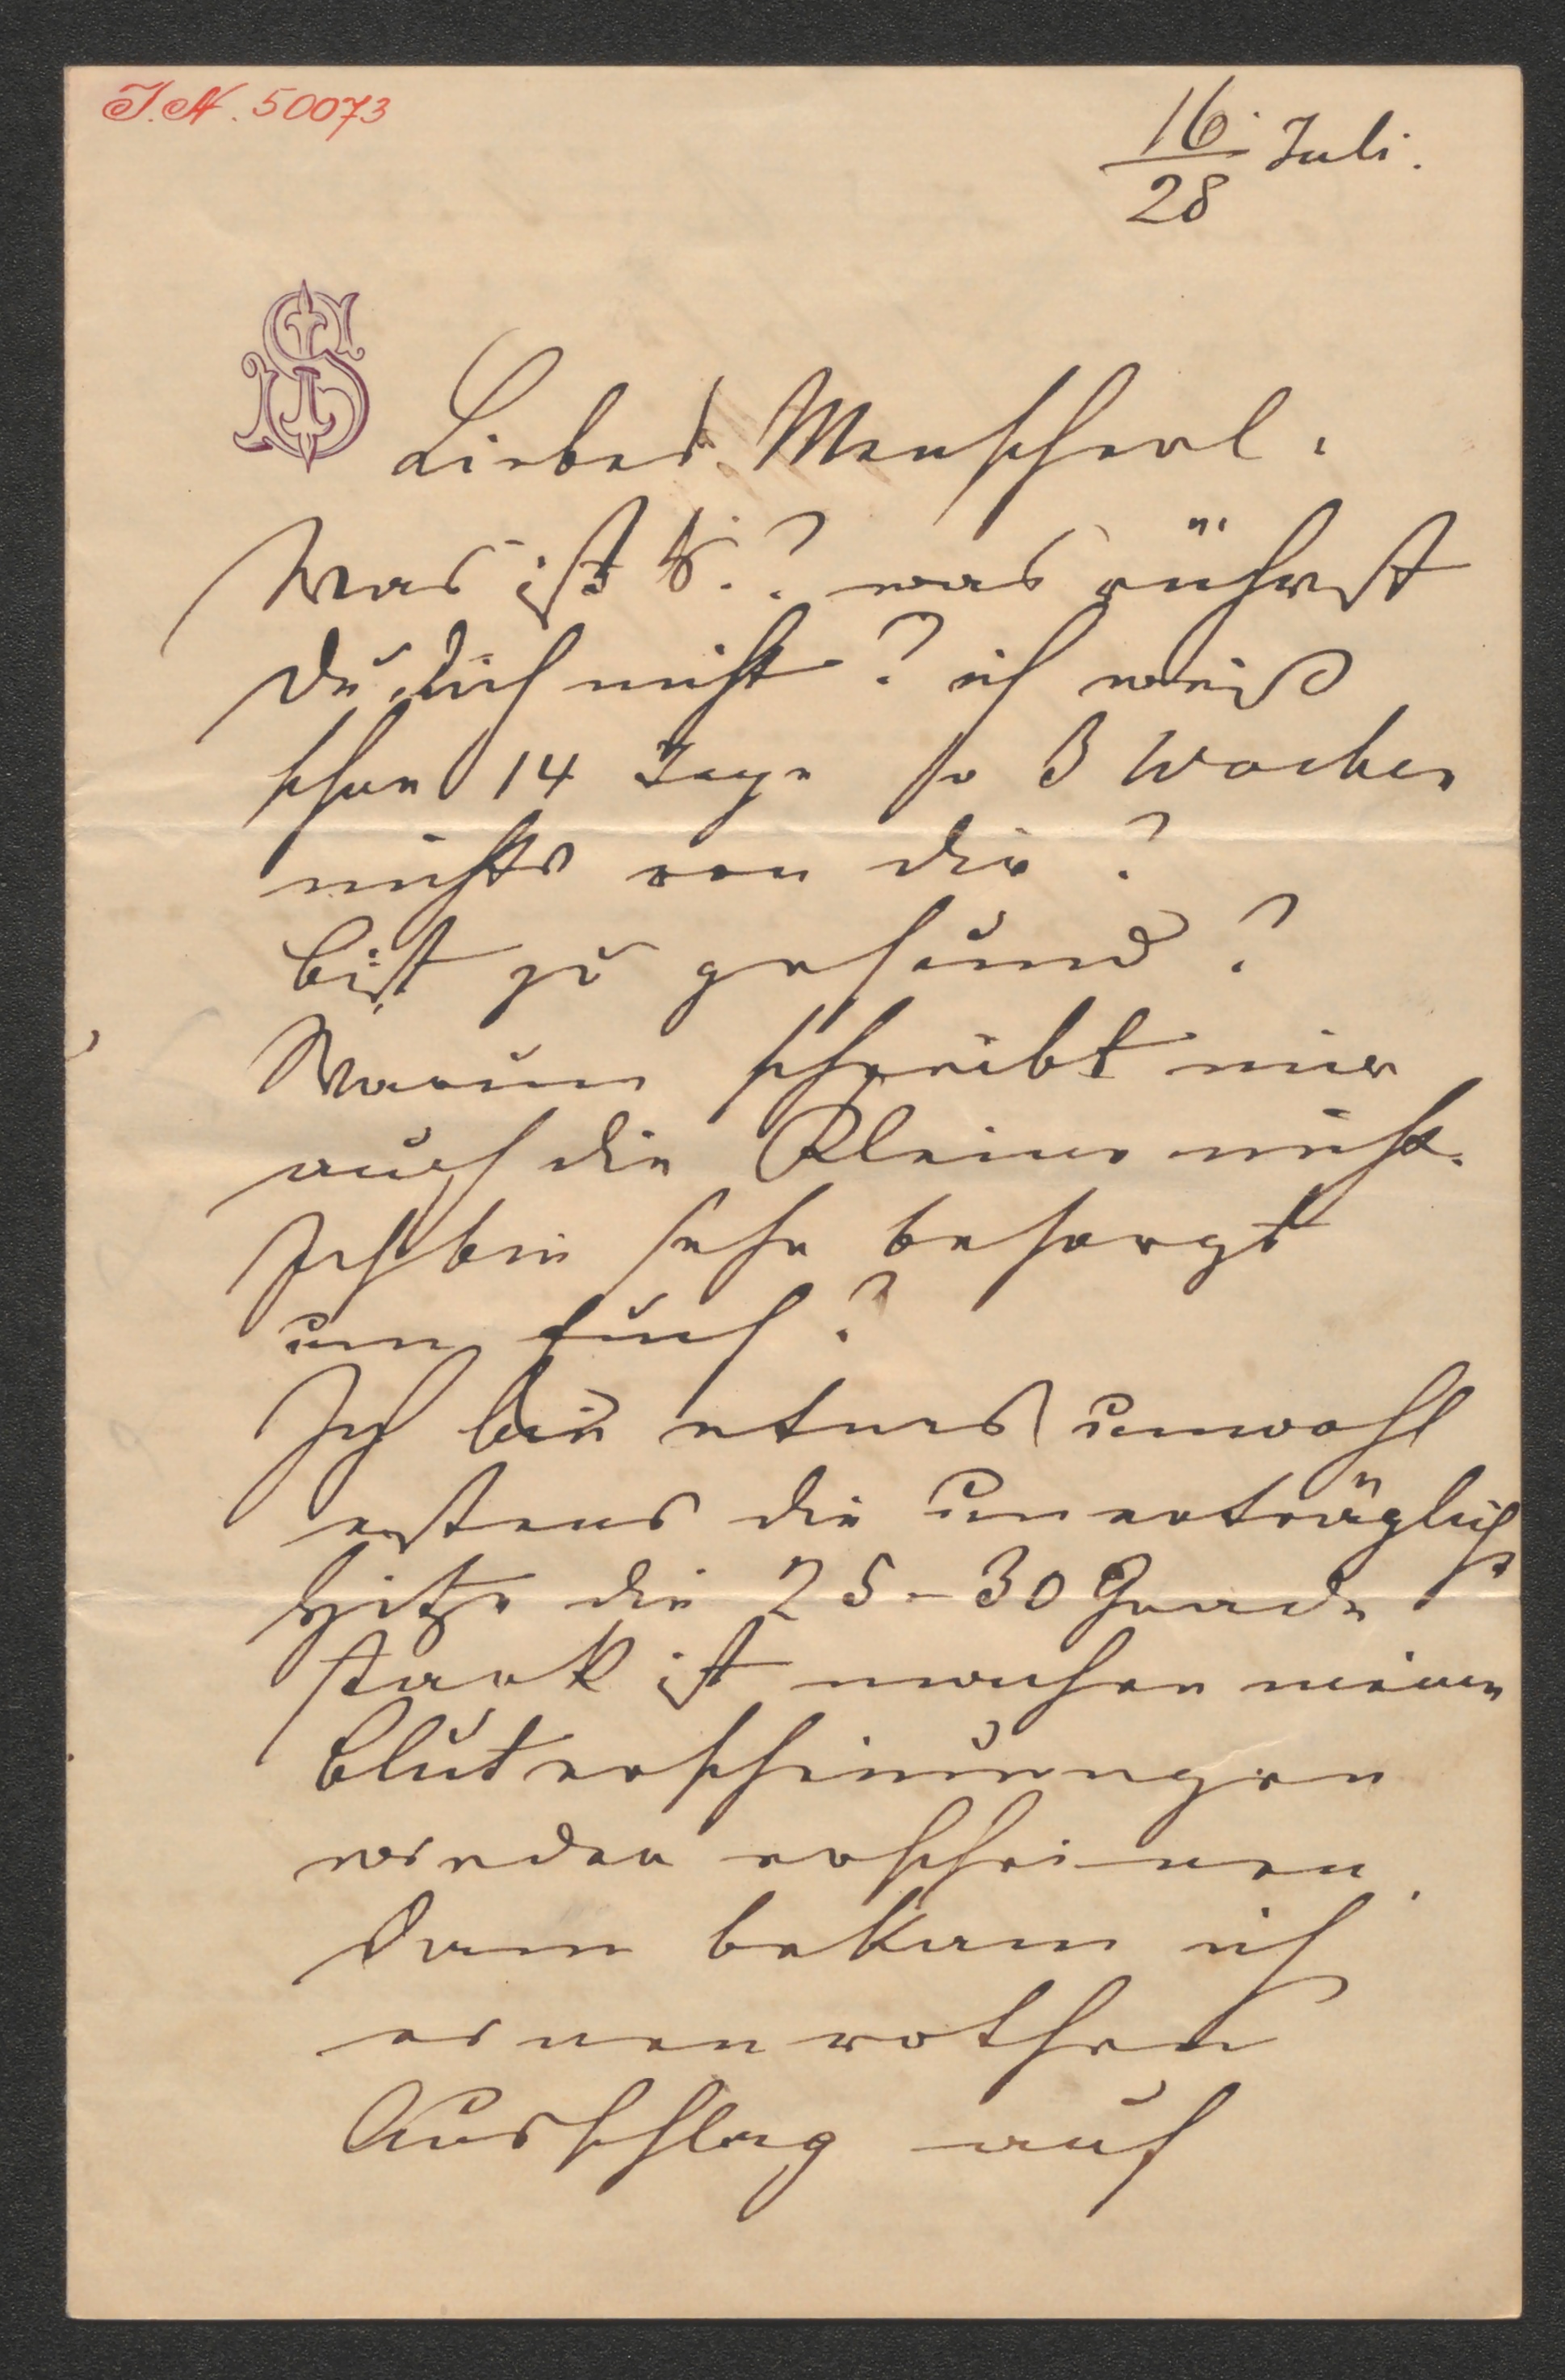 J. N. 50073
16./28 Juli.
JS
Liebes Menscherl.
Was ist s.? was rührst
du dich nicht? ich weiß
schon 14 Tage so 3 Wochen
nichts von dir?
bist gesund?
Warum schreibt mir
auch die Kleine nicht.
Ich bin sehr besorgt
um Euch?
Ich bin etwas unwohl
erstens die unerträgliche
Hitze die 25-30 Grade
stark ist machen meine
Bluterscheinungen
wieder erscheinen.
Dann bekam ich
einen rothen
Ausschlag auf